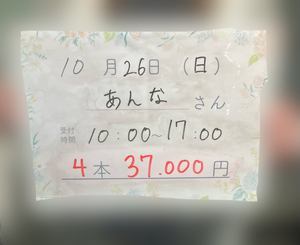 10月26日(日)
あんなさん
受付時間 10:00~17:00
4本 37.000円